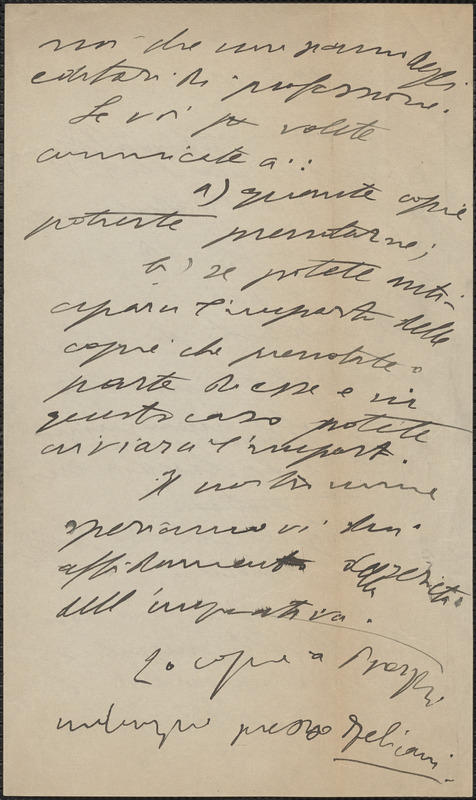 noi che non siamo degli
editori di professione.
Se voi volete
comunicate a::
a) quante copie
potreste prenotarne;
b) se potete anti-
ciparci l'importo delle
copie che prenotate o
parte di esse e in
questo caso potete
inviarci l'import.
Il nostro nome
speriamo vi dia
affidamento della serietà
dell'iniziativa.
Lo copie a
presso Feliciani.